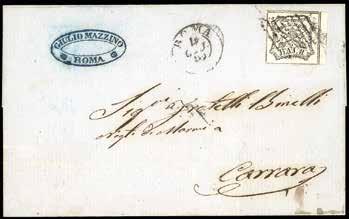 GIULIO MAZZINO
ROMA
ROMA
BAJ 8
Sig.ri Fratelli Binelli
Negti di Marmi a
Carrara